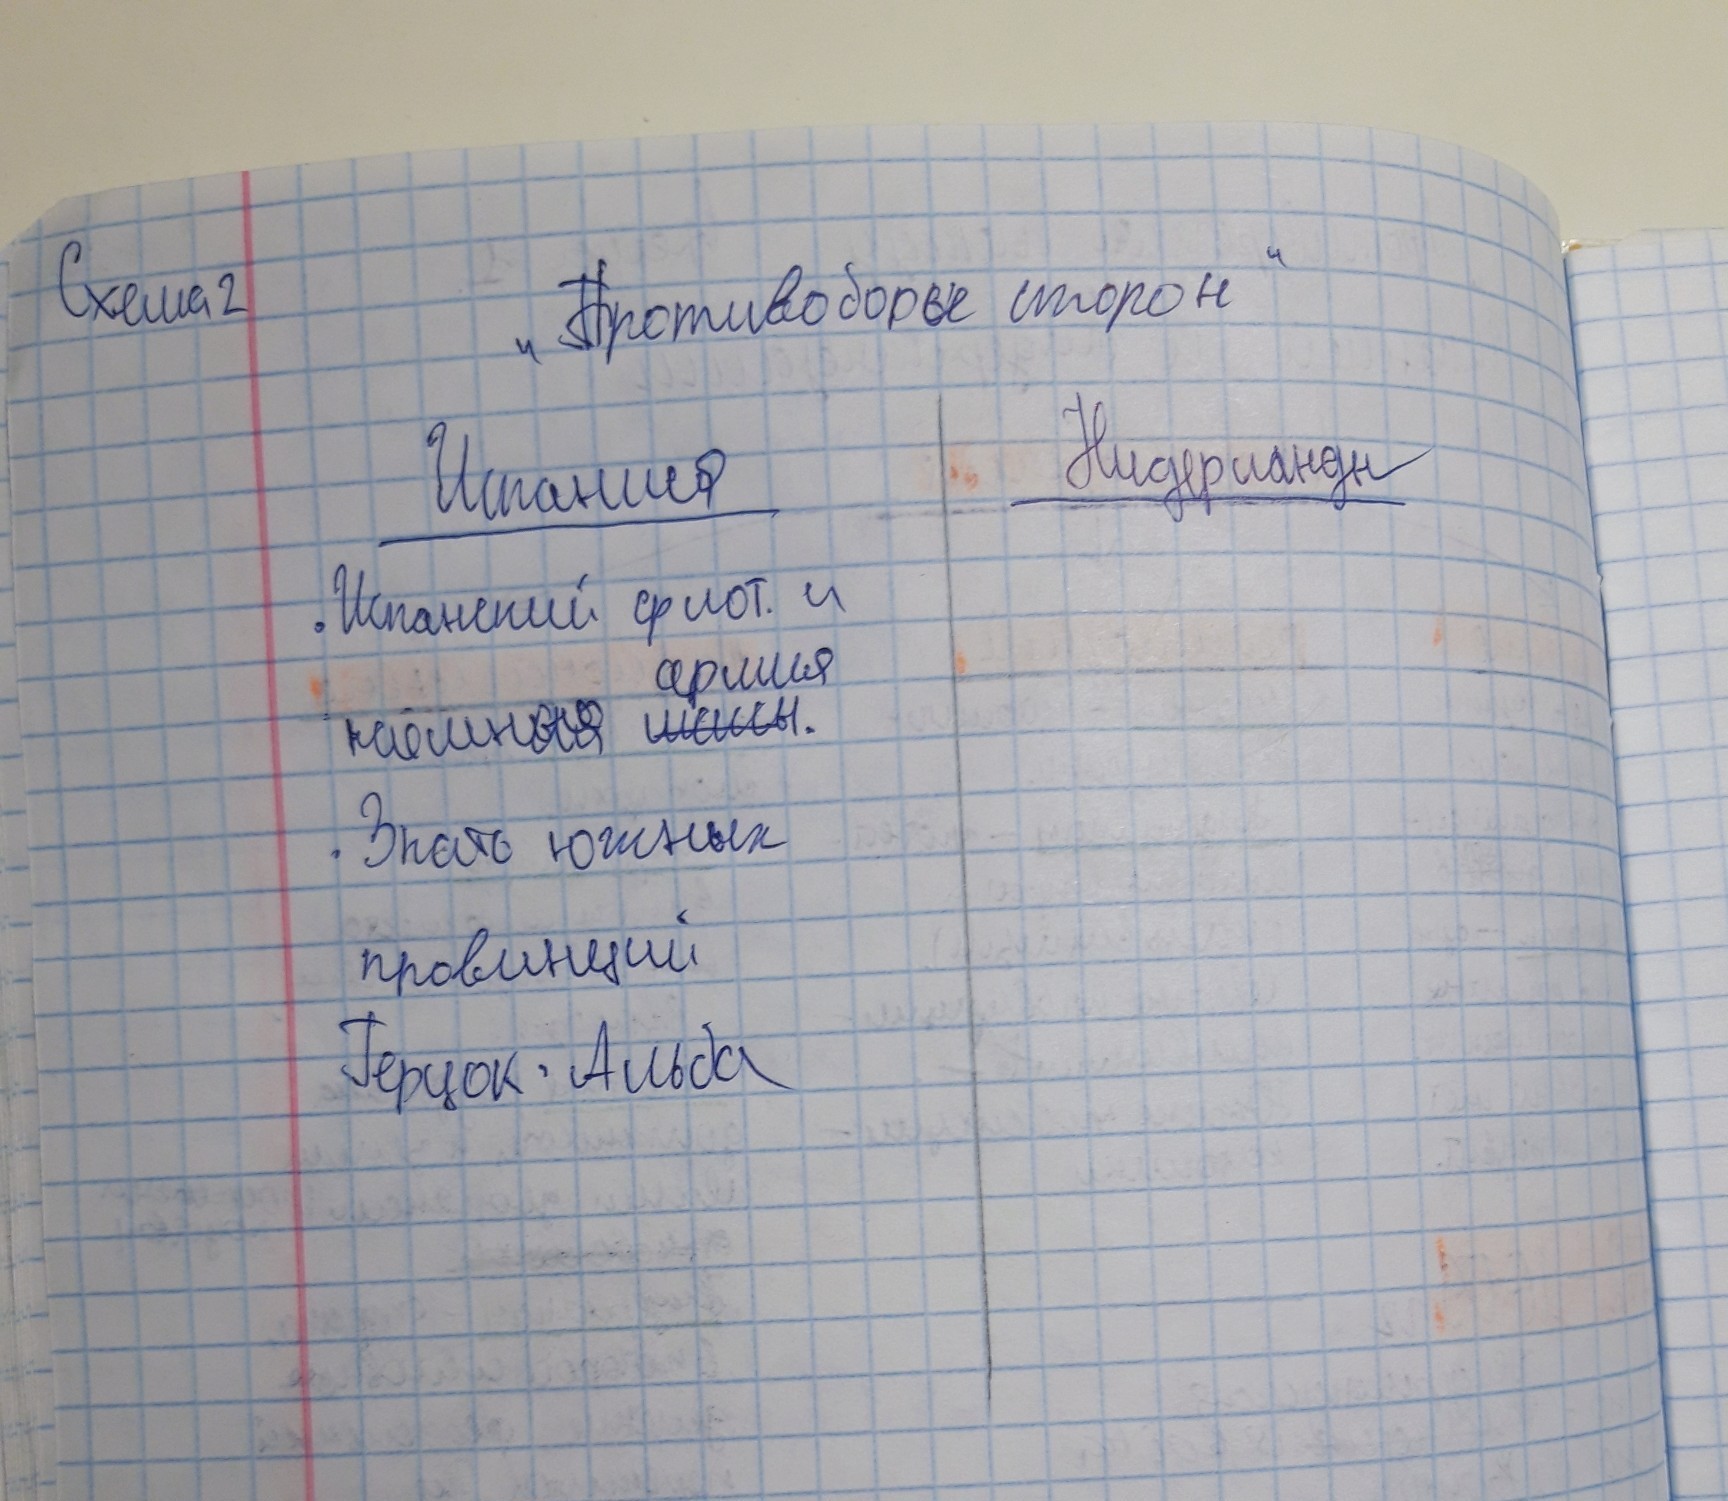 Схема 2
„Противоборье сторон"
Испания
Нидерланды
. Испанский флот. и
армия
наемная шассы.
. Знать южных
провинций
Герцок. Альба